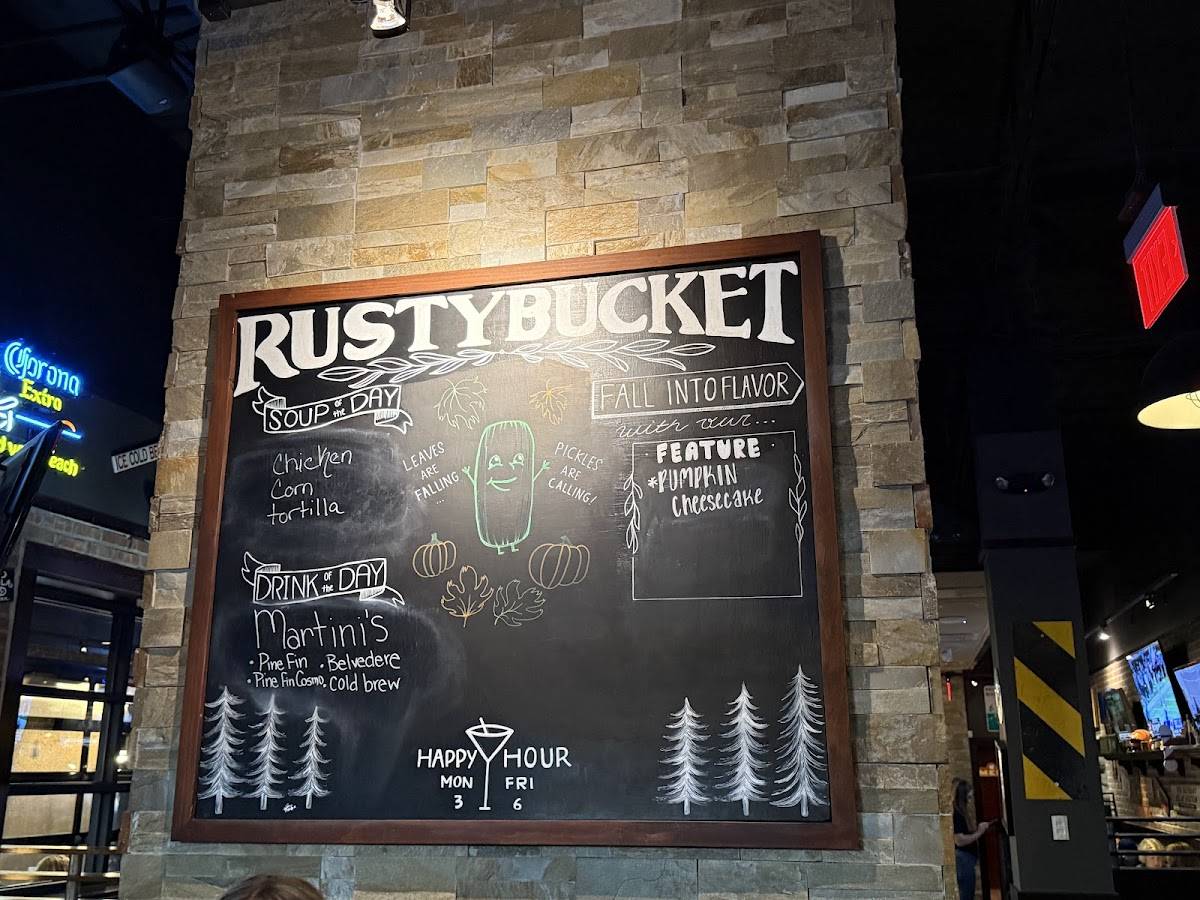 RUSTY BUCKET
SOUP of the DAY
Chicken
Corn
tortilla
LEAVES
ARE
FALLING
...
PICKLES
ARE
CALLING!
FALL INTO FLAVOR
with our...
· FEATURE ·
*PUMPKIN
Cheesecake
DRINK of the DAY
Martini's
· Pine Fin · Belvedere
· Pine Fin Cosmo · cold brew
HAPPY HOUR
MON FRI
3 6
Corona
Extra
each
ICE COLD BE
EXIT